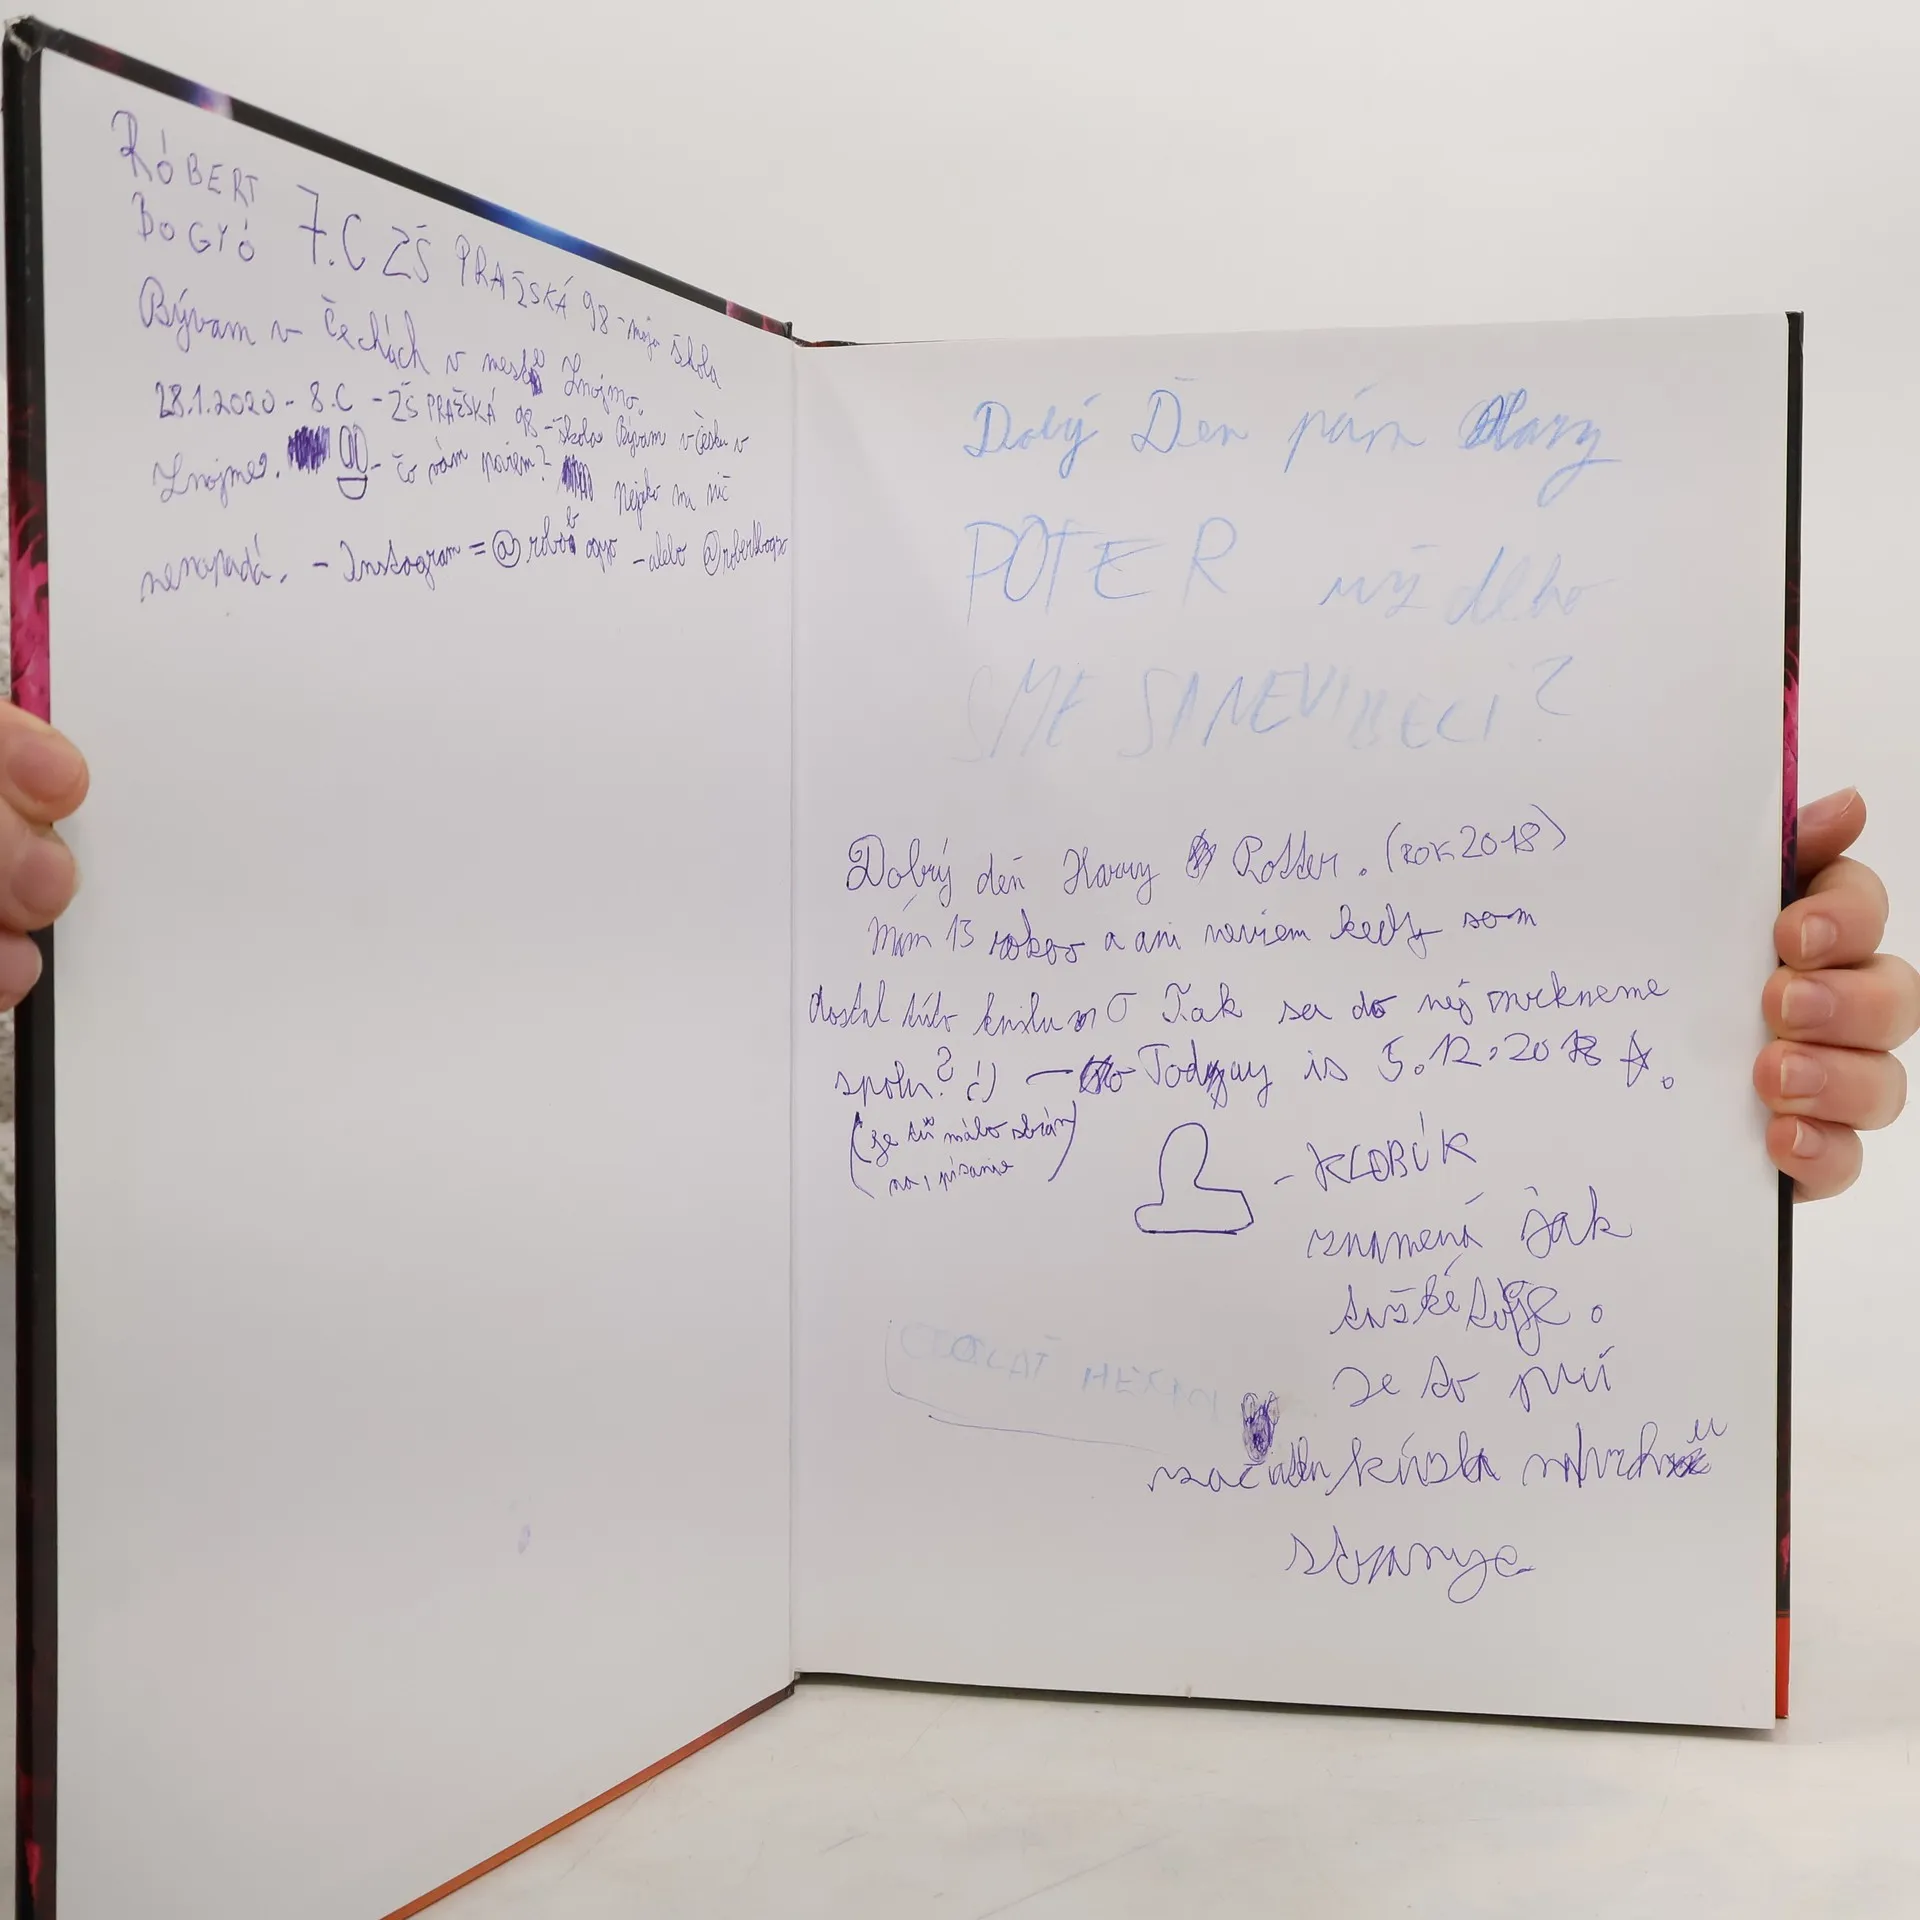 RÓBERT
BOGYÓ 7.C ZŠ PRAŽSKÁ 98 - moja škola
Bývam v Čechách v meste Znojmo.
28.1.2020 - 8.C - ZŠ PRAŽSKÁ 98 - škola Bývam v Česku v
Znojme. - čo vám poviem? Nejako ma nič
nenapadá. - Instagram = @robo - alebo @robertbogyo
Dobý Ďeň pám Hary
POTER už dlho
SME SA NEVIDECI?
Dobrý deň Harry Potter. (rok 2018)
Mám 13 rokov a ani neviem kedy som
dostal túto knihu Tak sa do nej mrkneme
spolu? :) - Today is 5.12.2018
(Je tu málo strán
na písanie)
- KLOBÚK
znamená jak
je to pri
začiatku